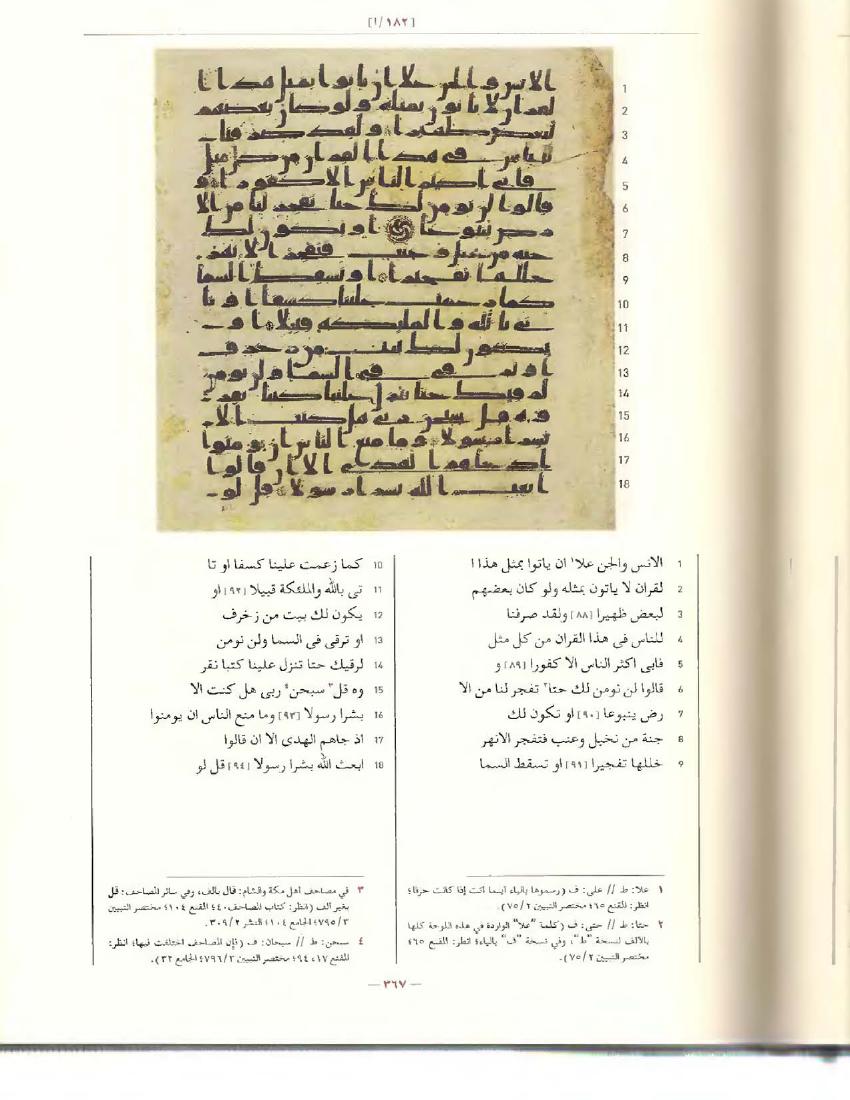 [١٨٢/ا]
1 الانس والجن علا¹ ان ياتوا بمثل هذا ا
2 لقران لا ياتون بمثله ولو كان بعضهم
3 لبعض ظهيرا [٨٨] ولقد صرفنا
4 للناس فى هذا القران من كل مثل
5 فابى اكثر الناس الا كفورا [٨٩] و
6 قالوا لن نومن لك حتا² تفجر لنا من الا
7 رض ينبوعا [٩٠] او تكون لك
8 جنة من نخيل وعنب فتفجر الانهر
9 خللها تفجيرا [٩١] او تسقط السما
10 كما زعمت علينا كسفا او تا
11 تى بالله والملئكة قبيلا [٩٢] او
12 يكون لك بيت من زخرف
13 او ترقى فى السما ولن نومن
14 لرقيك حتا تنزل علينا كتبا نقر
15 وه قل³ سبحن⁴ ربى هل كنت الا
16 بشرا رسولا [٩٣] وما منع الناس ان يومنوا
17 اذ جاهم الهدى الا ان قالوا
18 ابعث الله بشرا رسولا [٩٤] قل لو
١ علا: ط // على: ف (رسموها بالياء أينما أتت إذا كانت حرفا؛
انظر: المقنع ٦٥؛ مختصر التبيين ٧٥/٢).
٢ حتا: ط // حتى: ف (كلمة "علا" الواردة في هذه اللوحة كلها
بالألف لنسخة "ط"، وفي نسخة "ف" بالياء؛ انظر: المقنع ٦٥؛
مختصر التبيين ٧٥/٢).
٣ في مصاحف أهل مكة والشام: قال بألف، وفي سائر المصاحف: قل
بغير ألف (انظر: كتاب المصاحف ٤٠؛ المقنع ١٠٤؛ مختصر التبيين
٧٩٥/٣؛ الجامع ١٠٤؛ النشر ٣٠٩/٢).
٤ سبحن: ط // سبحان: ف (فإن المصاحف اختلفت فيها؛ انظر:
المقنع ١٧، ٩٤؛ مختصر التبيين ٧٩٦/٣؛ الجامع ٣٢).
— ٣٦٧ —